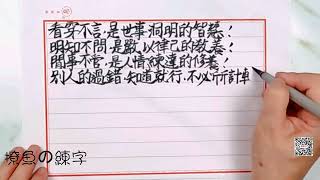 看穿不言,是世事洞明的智慧!
明知不問,是嚴以律己的教養!
閒事不管,是人情練達的修養!
別人的過錯,知道就行,不必計
撩虽の練字